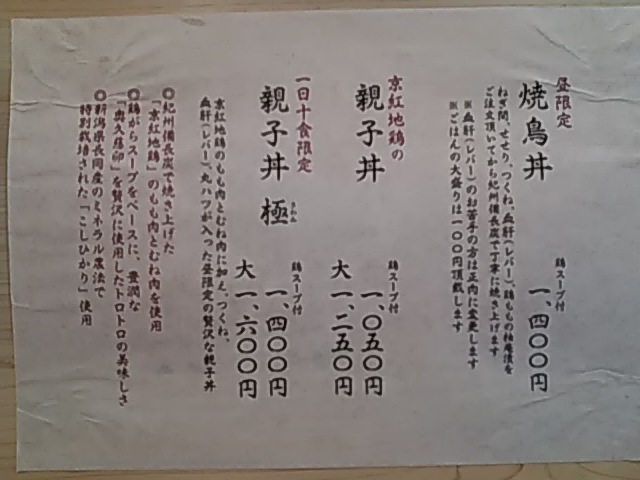 昼限定
焼鳥丼
鶏スープ付
一、四〇〇円
ねぎ間、せせり、つくね、血肝(レバー)、鶏ももの柚庵漬を
ご注文頂いてから紀州備長炭で丁寧に焼き上げます
※血肝(レバー)のお苦手の方は正肉に変更します
※ごはんの大盛りは一〇〇円頂戴します
京紅地鶏の
親子丼
鶏スープ付
一、〇五〇円
大 一、二五〇円
一日十食限定
親子丼 極
きわみ
鶏スープ付
一、四〇〇円
大 一、六〇〇円
京紅地鶏のもも肉とむね肉に加え、つくね、
血肝(レバー)、丸ハツが入った昼限定の贅沢な親子丼
◎紀州備長炭で焼き上げた
「京紅地鶏」のもも肉とむね肉を使用
◎鶏がらスープをベースに、豊潤な
「奥久慈卵」を贅沢に使用したトロトロの美味しさ
◎新潟県長岡産のミネラル農法で
特別栽培された「こしひかり」使用